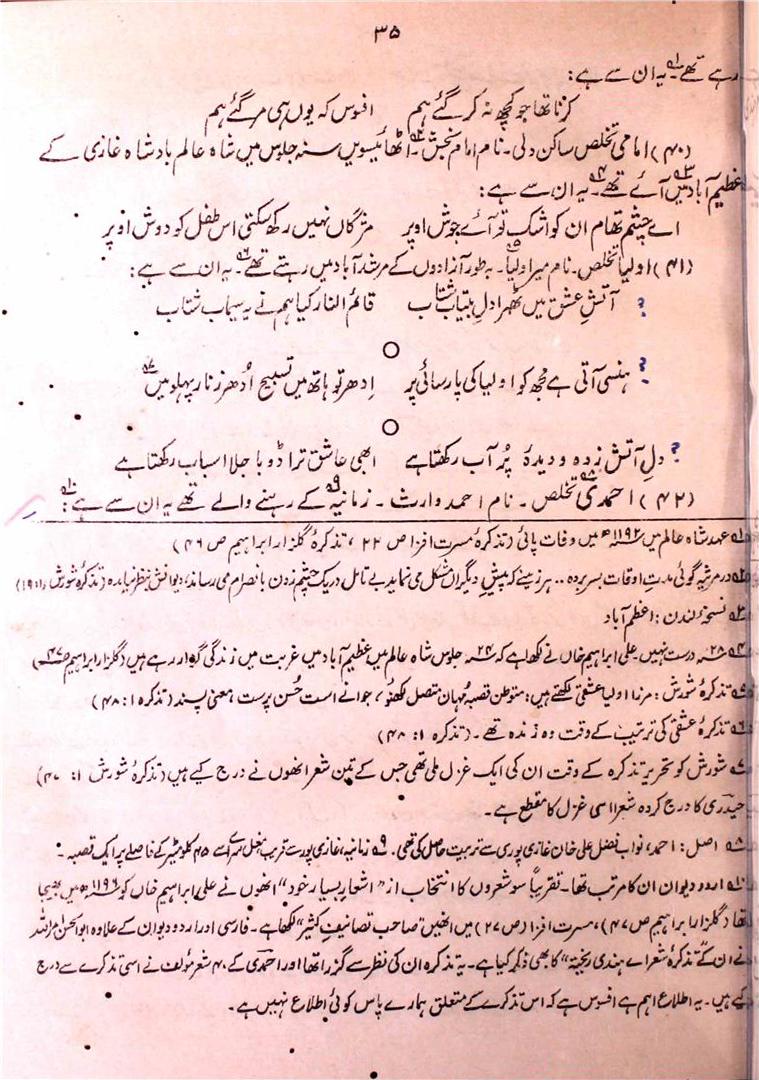 ۳۵
رہے تھے۱۔ یہ ان سے ہے:
کرنا تھا جو کچھ نہ کر گئے ہم افسوس کہ یوں ہی مر گئے ہم
(۴۰) امامی تخلص ساکن دلی۔ نام امام بخش۲۔ اٹھائیسویں سنہ جلوس میں شاہ عالم بادشاہ غازی کے
عظیم آباد۳ میں آئے تھے۴۔ یہ ان سے ہے:
اے چشم تھام ان کو اشک تو آئے جوش اوپر مژگاں نہیں رکھ سکتی اس طفل کو دوش اوپر
(۴۱) اولیا تخلص۔ نام میر اولیا۵۔ بہ طور آزادوں کے مرشد آباد میں رہتے تھے۶۔ یہ ان سے ہے:
؟ آتشِ عشق میں ٹھہرا دلِ بیتاب شتاب قائم النار کیا ہم نے یہ سیماب شتاب
؟ ہنسی آتی ہے مجھ کو اولیا کی پارسائی پر اِدھر تو ہاتھ میں تسبیح اُدھر زنار پہلو میں۷
؟ دلِ آتش زدہ و دیدۂ پُر آب رکھتا ہے ابھی عاشق ترا ڈوبا جلا اسباب رکھتا ہے
(۴۲) احمدی۸ تخلص۔ نام احمد وارث۔ زمانیہ۹ کے رہنے والے تھے یہ ان سے ہے۱۰:
۱ عہد شاہ عالم میں سنہ ۱۱۹۲ھ میں وفات پائی (تذکرۂ مسرت افزا ص ۲۲، تذکرۂ گلزار ابراہیم ص ۴۶)
۲ در مرثیہ گوئی مدتِ اوقات بسر بردہ .. ہر زمینے کہ پیشِ دیگراں مشکل می نماید بے تامل در یک چشم زدن بانصرام می رساند، دیوانش بنظر نیامدہ (تذکرہ شورش ۱: ۱۹)
۳ نسخۂ لندن: اعظم آباد
۴ سنہ ۲۸ درست نہیں۔ علی ابراہیم خاں نے لکھا ہے کہ سنہ ۲۴ جلوس شاہ عالم میں عظیم آباد میں غربت میں زندگی گزار رہے ہیں (گلزار ابراہیم ص ۴۷)
۵ تذکرۂ شورش: مرزا اولیا عشقی لکھتے ہیں: متوطن قصبہ مہان متصل لکھنؤ، جوانے است حُسن پرست معنی پسند (تذکرہ ۱: ۴۸)
۶ تذکرۂ عشقی کی ترتیب کے وقت وہ زندہ تھے۔ (تذکرہ ۱: ۴۸)
۷ شورش کو تحریرِ تذکرہ کے وقت ان کی ایک غزل ملی تھی جس کے تین شعر انھوں نے درج کیے ہیں (تذکرۂ شورش ۱: ۴۷)
حیدری کا درج کردہ شعر اسی غزل کا مقطع ہے۔
۸ اصل: احمد، نواب فضل علی خان غازی پوری سے تربیت حاصل کی تھی۔ ۹ زمانیہ، غازی پور سے قریب مغل سراے سے ۴۵ کلومیٹر کے فاصلے پر ایک قصبہ۔
۱۰ اردو دیوان ان کا مرتب تھا۔ تقریباً سو شعروں کا انتخاب از "اشعارِ بسیار خود" انھوں نے علی ابراہیم خاں کو سنہ ۱۱۹۶ھ میں بھیجا
تھا (گلزار ابراہیم ص ۴۷)، مسرت افزا (ص ۲۷) میں انھیں "صاحب تصانیفِ کثیر" لکھا ہے۔ فارسی اور اردو دیوان کے علاوہ ابوالحسن امراللہ
نے ان کے "تذکرۂ شعراے ہندی ریختہ" کا بھی ذکر کیا ہے۔ یہ تذکرہ ان کی نظر سے گزرا تھا اور احمدی کے ۴۰ شعر مؤلف نے اسی تذکرے سے درج
کیے ہیں۔ یہ اطلاع اہم ہے افسوس ہے کہ اس تذکرے کے متعلق ہمارے پاس کوئی اطلاع نہیں ہے۔